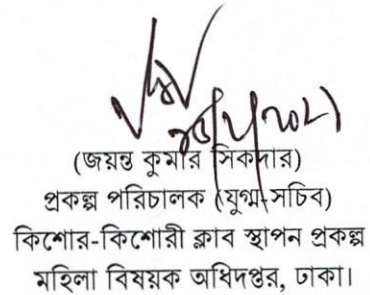 (জয়ন্ত কুমার সিকদার)
প্রকল্প পরিচালক (যুগ্ম-সচিব)
কিশোর-কিশোরী ক্লাব স্থাপন প্রকল্প
মহিলা বিষয়ক অধিদপ্তর, ঢাকা।